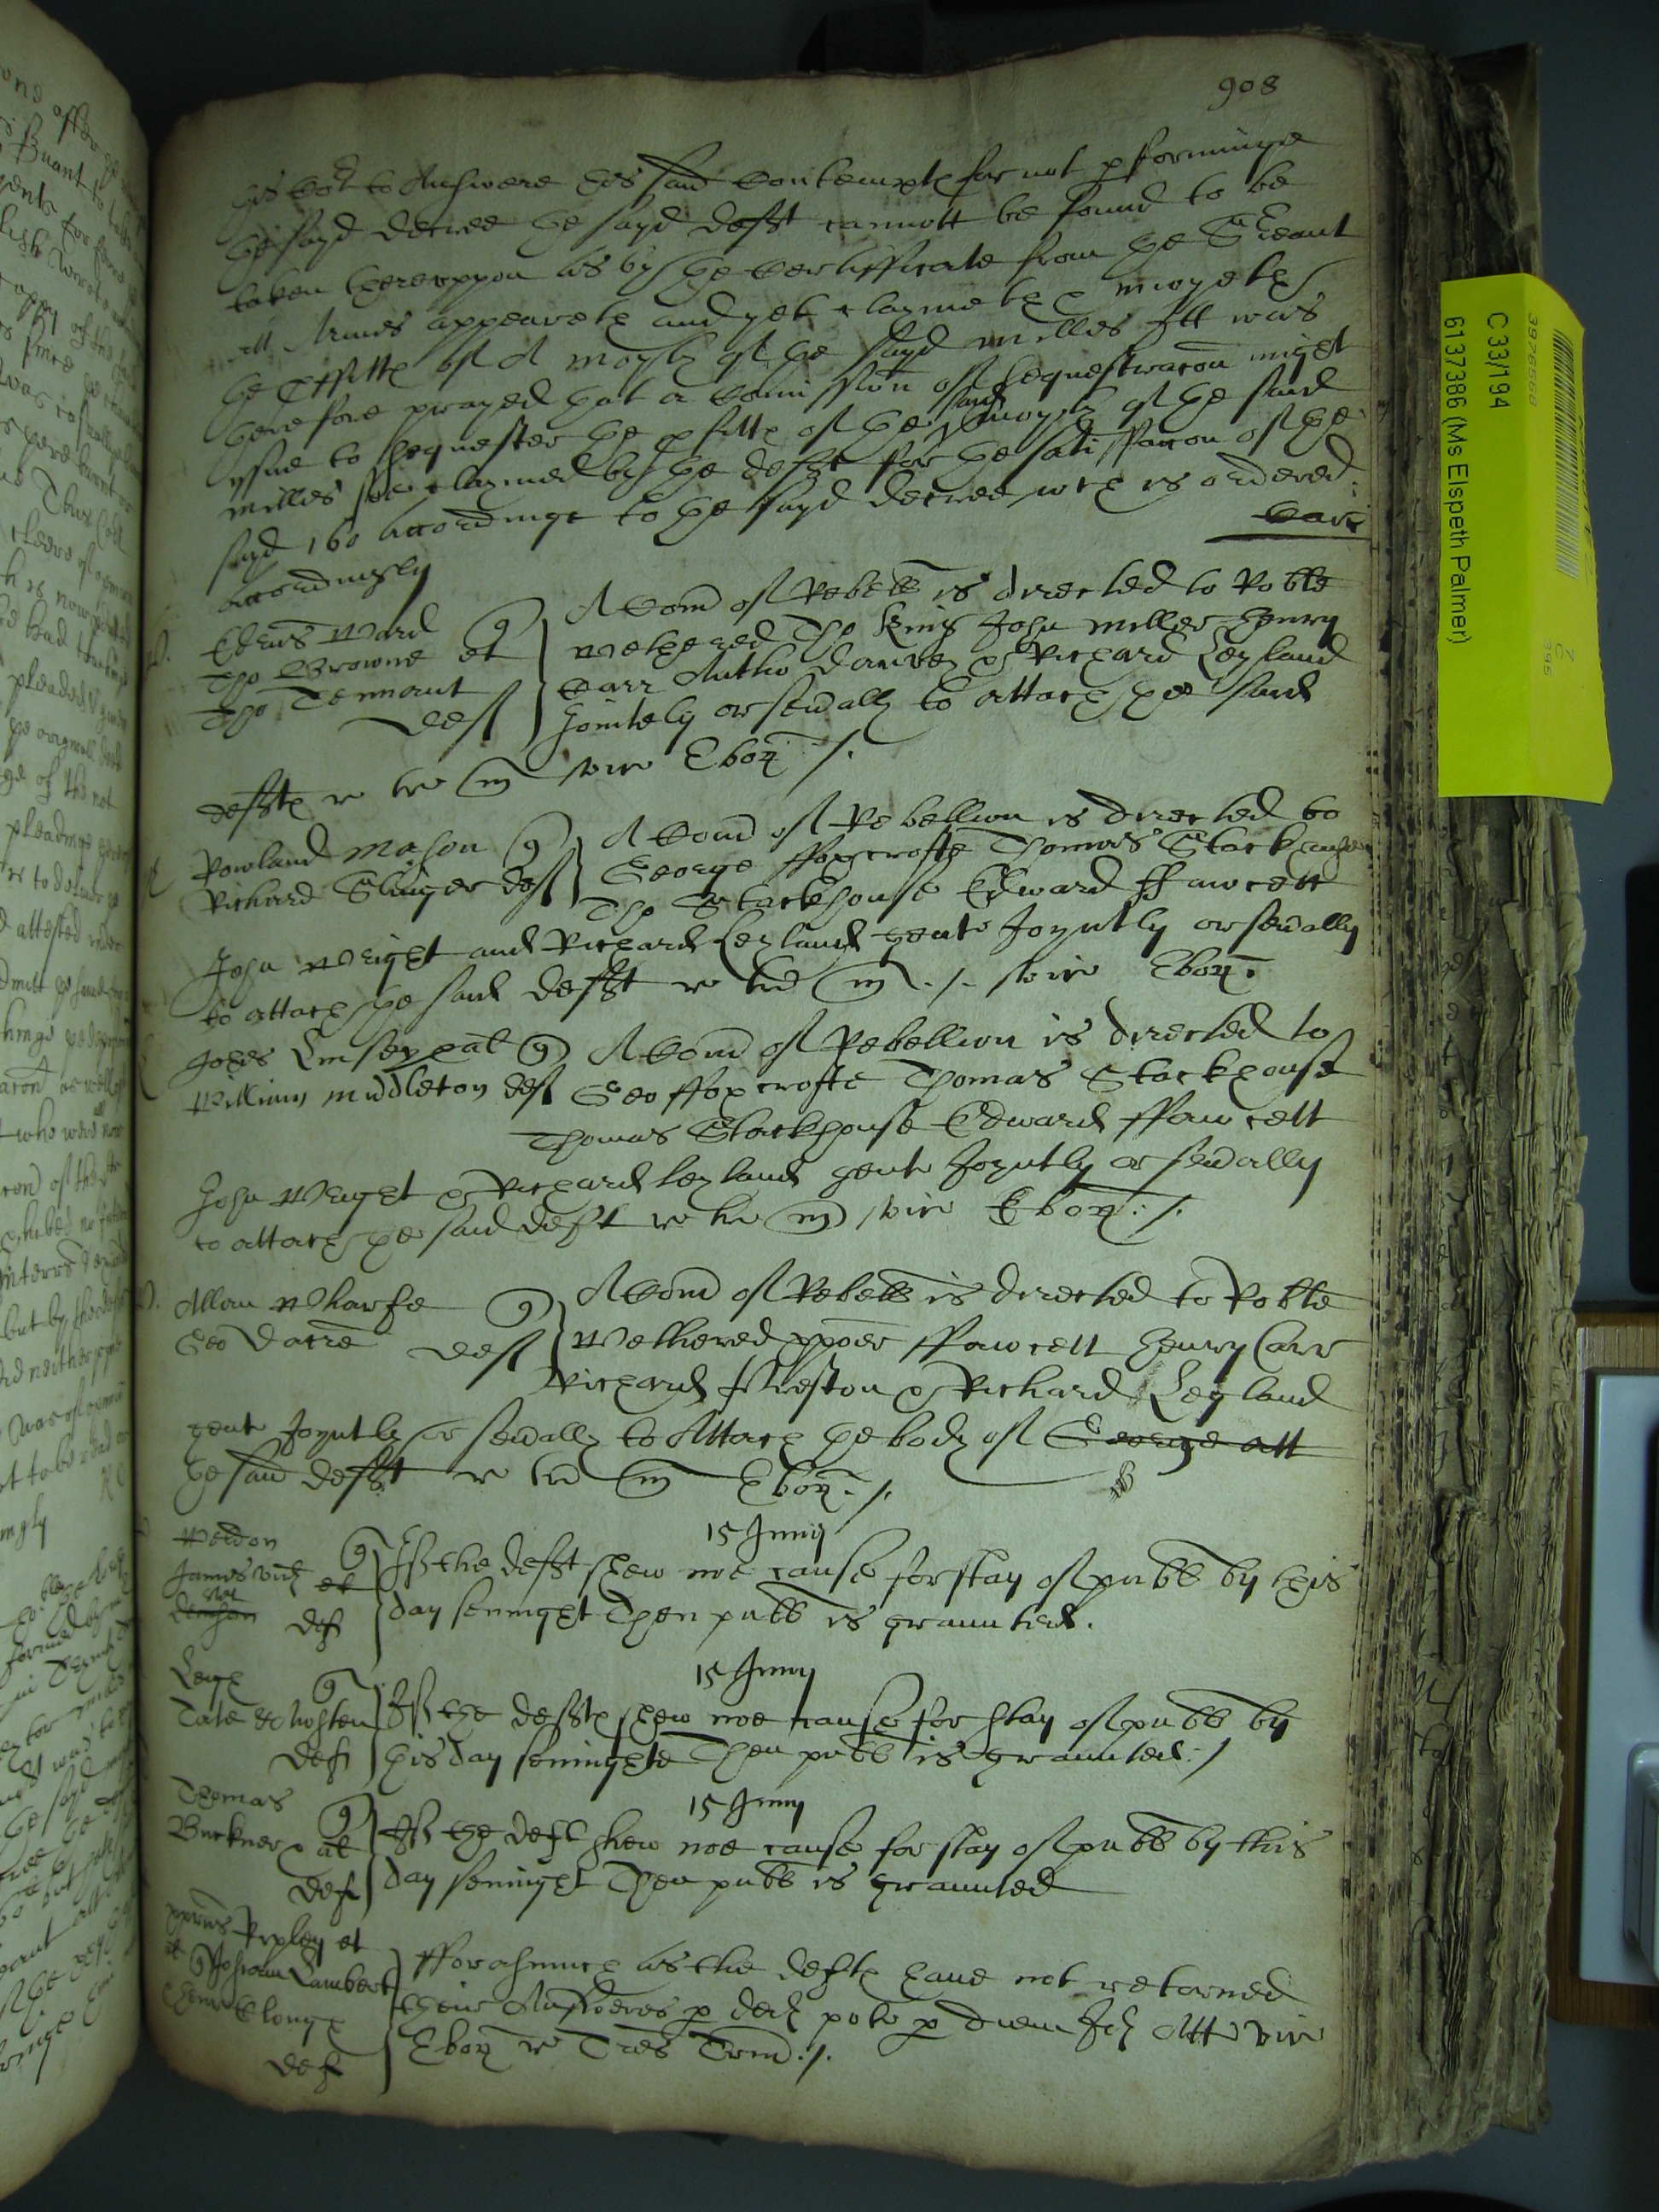 908
his Cort to Answere his said Contempte for not pforminge
the sayd decree the sayd defft cannott be found to be
taken thereuppon as by the Certifficate from the Srieant
att Armes appeareth and yet claymeth
the pffitte of A moyty of the sayd milles Itt was
therefore prayed that a Comission of sequestracon might
yssue to sequester the pfitte of the said moyty of the said
milles soe claymed by the defft for the satisffaccon of the
sayd 160 accordinge to the sayd decree wch is ordered
accordingly
Carr
Edrus Ward
Tho Browne et
Tho Tennant
Deft
A Comd of Rebell is directed to Robte
Wethered Tho King John Miller Henry
Carr Antho & Richard Leyland
Jointely or seually to attach the said
deffte r tre m vic Ebor ./.
Rowland Mason
Richard Slinger deft
A Comd of Rebellion is directed to
George ffoxcrofte Thomas Stackhouse
Tho Stackhouse Edward ffawcett
John Wright and Richard Leyland gent Joyntly or seually
to attach the said defft r tre m ./. vic Ebor.
Linsey
William Middleton deft
A Comd of Rebellion is directed to
Geo ffoxcrofte Thomas Stackhouse
Thomas Stackhouse Edward ffawcett
John Wright & Richard Leyland gent Joyntly or seually
to attach the said deft r tre m vic Ebor ./.
Allan Wharfe
Geo Dacre deft
A Comd of Rebell is directed to Robte
Wethered xpoer ffawcett Henry Carr
Richard & Richard Leyland
gent Joyntly or seually to Attach the body of George att
the said defft r tre m Ebor ./.
15 Junij
Weldon
James vid et
deft
If the defft shew noe cause for stay of publ by this
day seninght Then publ is graunted.
15 Junij
Leigh
Tate
deft
If the deffte shew noe cause for stay of publ by
this day seninghte Then publ is graunted ./
15 Junij
Thomas
Buckner
deft
If the deft shew noe cause for stay of publ by this
day seninght Then publ is graunted
Ripley et
Lambert
deft
fforasmuch as the defte haue not retorned
their Answeres p ded pote p Att vic
Ebor r Tres ./.
C 33/194
6137386 (Ms Elspeth Palmer)
3976568